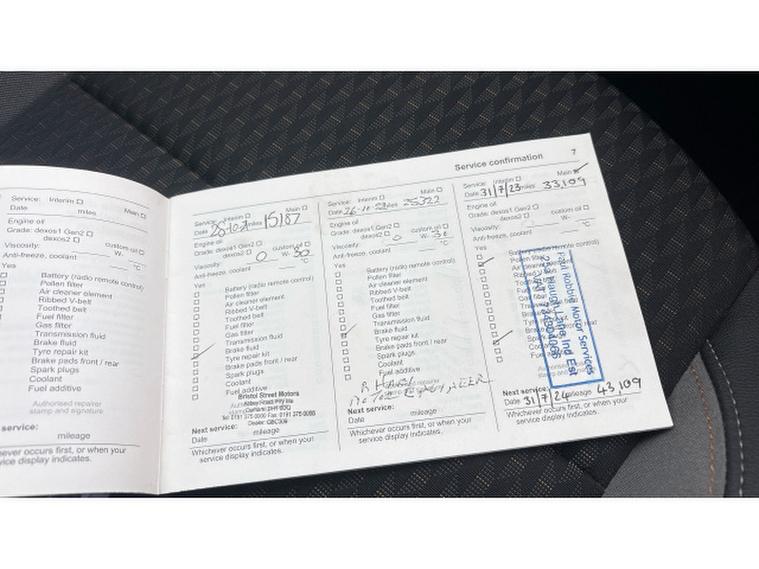 Service confirmation 7
Service: Interim Main
Date miles
Engine oil
Grade: dexos1 Gen2
dexos2 custom oil
Viscosity: W-
Anti-freeze, coolant °C
Yes
Battery (radio remote control)
Pollen filter
Air cleaner element
Ribbed V-belt
Toothed belt
Fuel filter
Gas filter
Transmission fluid
Brake fluid
Tyre repair kit
Brake pads front / rear
Spark plugs
Coolant
Fuel additive
Authorised repairer
stamp and signature
service:
mileage
ever occurs first, or when your
vice display indicates.
Service: Interim Main
Date miles 15187
Engine oil
Grade: dexos1 Gen2
dexos2 custom oil
Viscosity: 0 W- 30
Anti-freeze, coolant °C
Yes
Battery (radio remote control)
Pollen filter
Air cleaner element
Ribbed V-belt
Toothed belt
Fuel filter
Gas filter
Transmission fluid
Brake fluid
Tyre repair kit
Brake pads front / rear
Spark plugs
Coolant
Fuel additive
Bristol Street Motors
Durham DH1
Next service:
Date mileage
Whichever occurs first, or when your
service display indicates.
Service: Interim Main
Date miles 25322
Engine oil
Grade: dexos1 Gen2
dexos2 custom oil
Viscosity: 0 W- 30
Anti-freeze, coolant °C
Yes
Battery (radio remote control)
Pollen filter
Air cleaner element
Ribbed V-belt
Toothed belt
Fuel filter
Gas filter
Transmission fluid
Brake fluid
Tyre repair kit
Brake pads front / rear
Spark plugs
Coolant
Fuel additive
Next service:
Date mileage
Whichever occurs first, or when your
service display indicates.
Service: Interim Main
Date 31/7/23 miles 33,109
Engine oil
Grade: dexos1 Gen2
dexos2 custom oil
Viscosity: W-
Anti-freeze, coolant °C
Yes
Motor Services
Lane, Ind Est
Next service:
Date 31/7/24 mileage 43,109
Whichever occurs first, or when your
service display indicates.